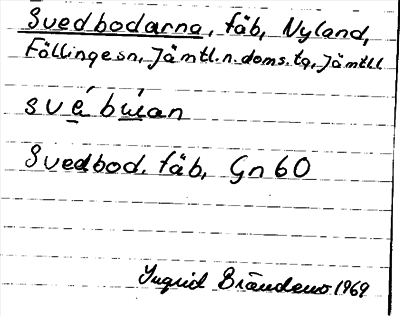 Svedbodarna, fäb, Nyland,
Föllinge sn, Jämtl. n. doms. tg, Jämtl l
svébωan
Svedbod. fäb, Gn 60
Ingrid 1969